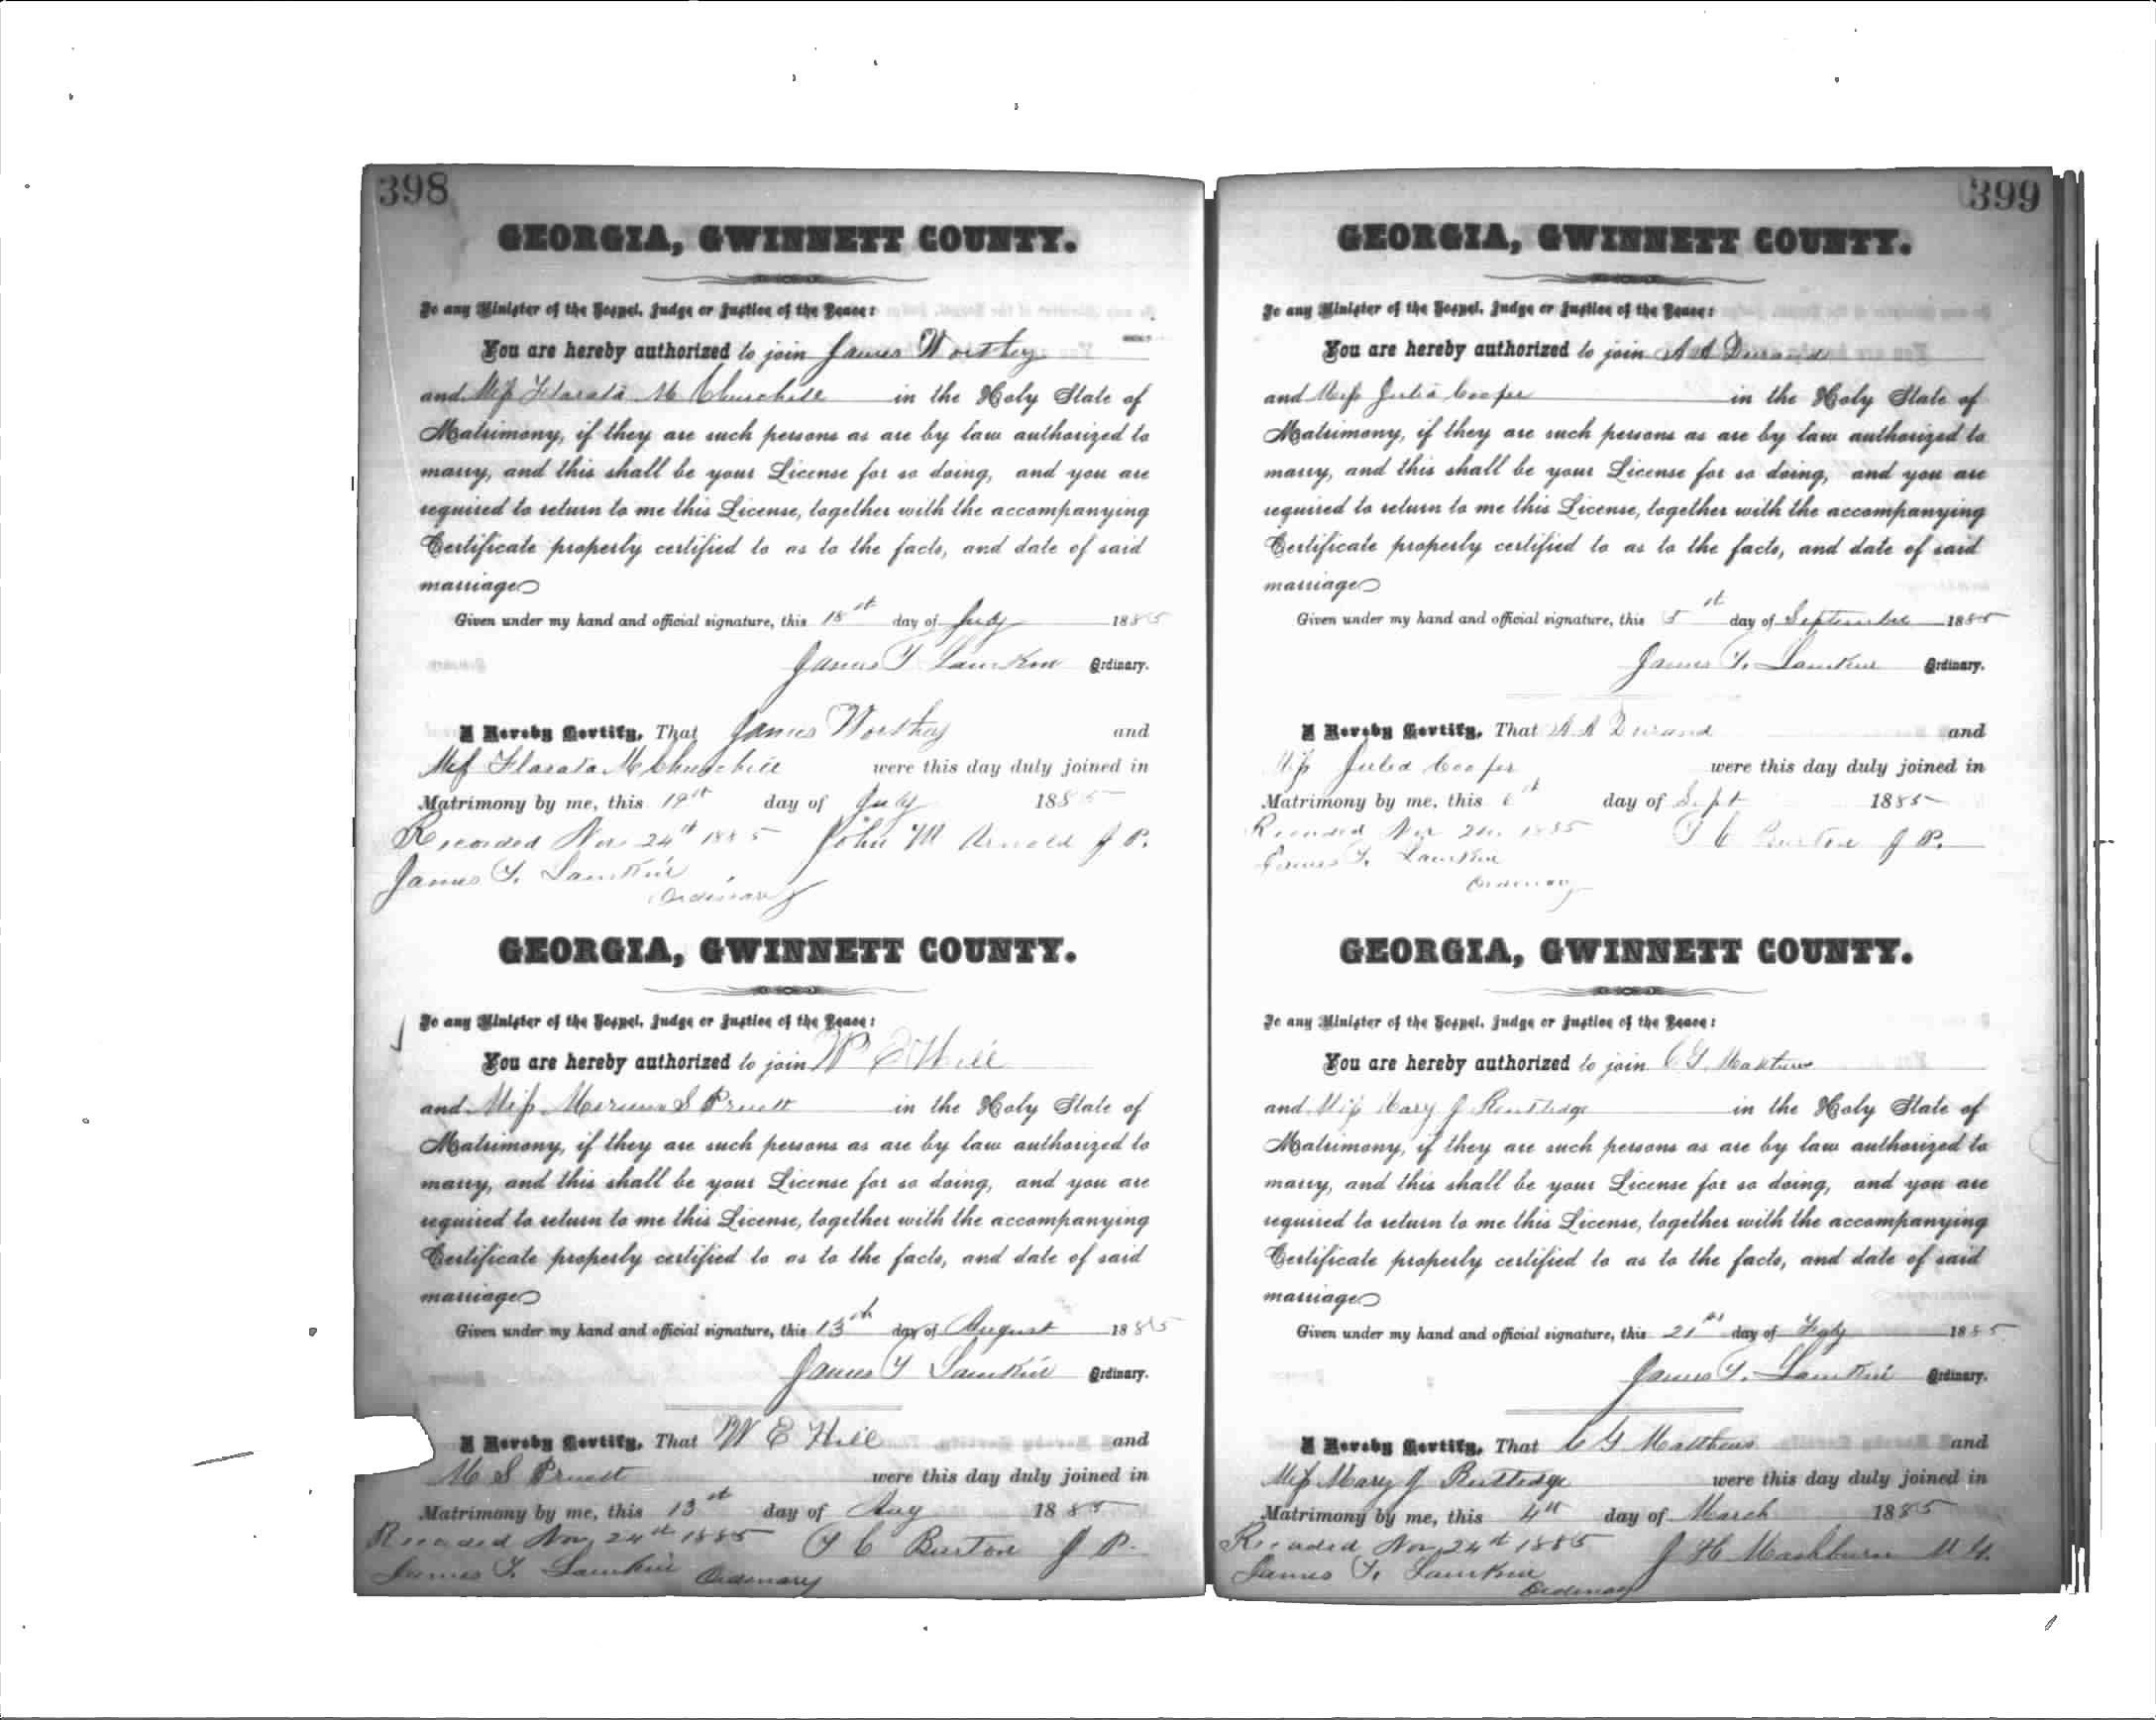 398
GEORGIA, GWINNETT COUNTY.
To any Minister of the Gospel, Judge or Justice of the Peace:
You are hereby authorized to join James Worthy
and Miss M Churchill in the Holy State of
Matrimony, if they are such persons as are by law authorized to
marry, and this shall be your License for so doing, and you are
required to return to me this License, together with the accompanying
Certificate properly certified to as to the facts, and date of said
marriage
Given under my hand and official signature, this 18st day of July 1885
James T Lamkin Ordinary.
I Hereby Certify, That James Worthy and
Miss M Churchill were this day duly joined in
Matrimony by me, this 19st day of July 1885
Recorded Nov 24th 1885 John M Arnold J P.
James T. Lamkin
Ordinary
GEORGIA, GWINNETT COUNTY.
To any Minister of the Gospel, Judge or Justice of the Peace:
You are hereby authorized to join W E Hill
and Miss S Pruett in the Holy State of
Matrimony, if they are such persons as are by law authorized to
marry, and this shall be your License for so doing, and you are
required to return to me this License, together with the accompanying
Certificate properly certified to as to the facts, and date of said
marriage
Given under my hand and official signature, this 13th day of August 1885
James T Lamkin Ordinary.
I Hereby Certify, That W E Hill and
M S Pruett were this day duly joined in
Matrimony by me, this 13st day of Aug 1885
Recorded Nov 24th 1885 T C Burton J P.
James T. Lamkin Ordinary
399
GEORGIA, GWINNETT COUNTY.
To any Minister of the Gospel, Judge or Justice of the Peace:
You are hereby authorized to join A A Durand
and Miss Julia Cooper in the Holy State of
Matrimony, if they are such persons as are by law authorized to
marry, and this shall be your License for so doing, and you are
required to return to me this License, together with the accompanying
Certificate properly certified to as to the facts, and date of said
marriage
Given under my hand and official signature, this 5st day of September 1885
James T. Lamkin Ordinary.
I Hereby Certify, That A A Durand and
Miss Julia Cooper were this day duly joined in
Matrimony by me, this 6st day of Sept 1885
Recorded Nov 24 1885 T C Burton J P.
James T. Lamkin
Ordinary
GEORGIA, GWINNETT COUNTY.
To any Minister of the Gospel, Judge or Justice of the Peace:
You are hereby authorized to join C G Matthews
and Miss Mary J Rutledge in the Holy State of
Matrimony, if they are such persons as are by law authorized to
marry, and this shall be your License for so doing, and you are
required to return to me this License, together with the accompanying
Certificate properly certified to as to the facts, and date of said
marriage
Given under my hand and official signature, this 21st day of 1885
James T. Lamkin Ordinary.
I Hereby Certify, That C G Matthews and
Miss Mary J Rutledge were this day duly joined in
Matrimony by me, this 4th day of March 1885
Recorded Nov 24th 1885 J H Mashburn M G.
James T. Lamkin
Ordinary